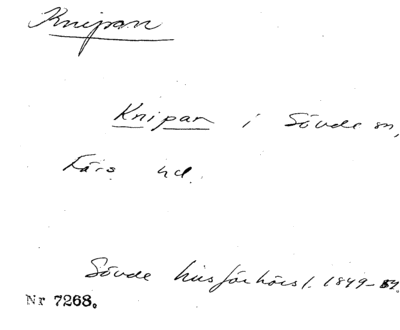 Knipan
Knipan i Sövde sn,
Färs hd.
Sövde husförhörsl. 1849-54.
Nr 7268.